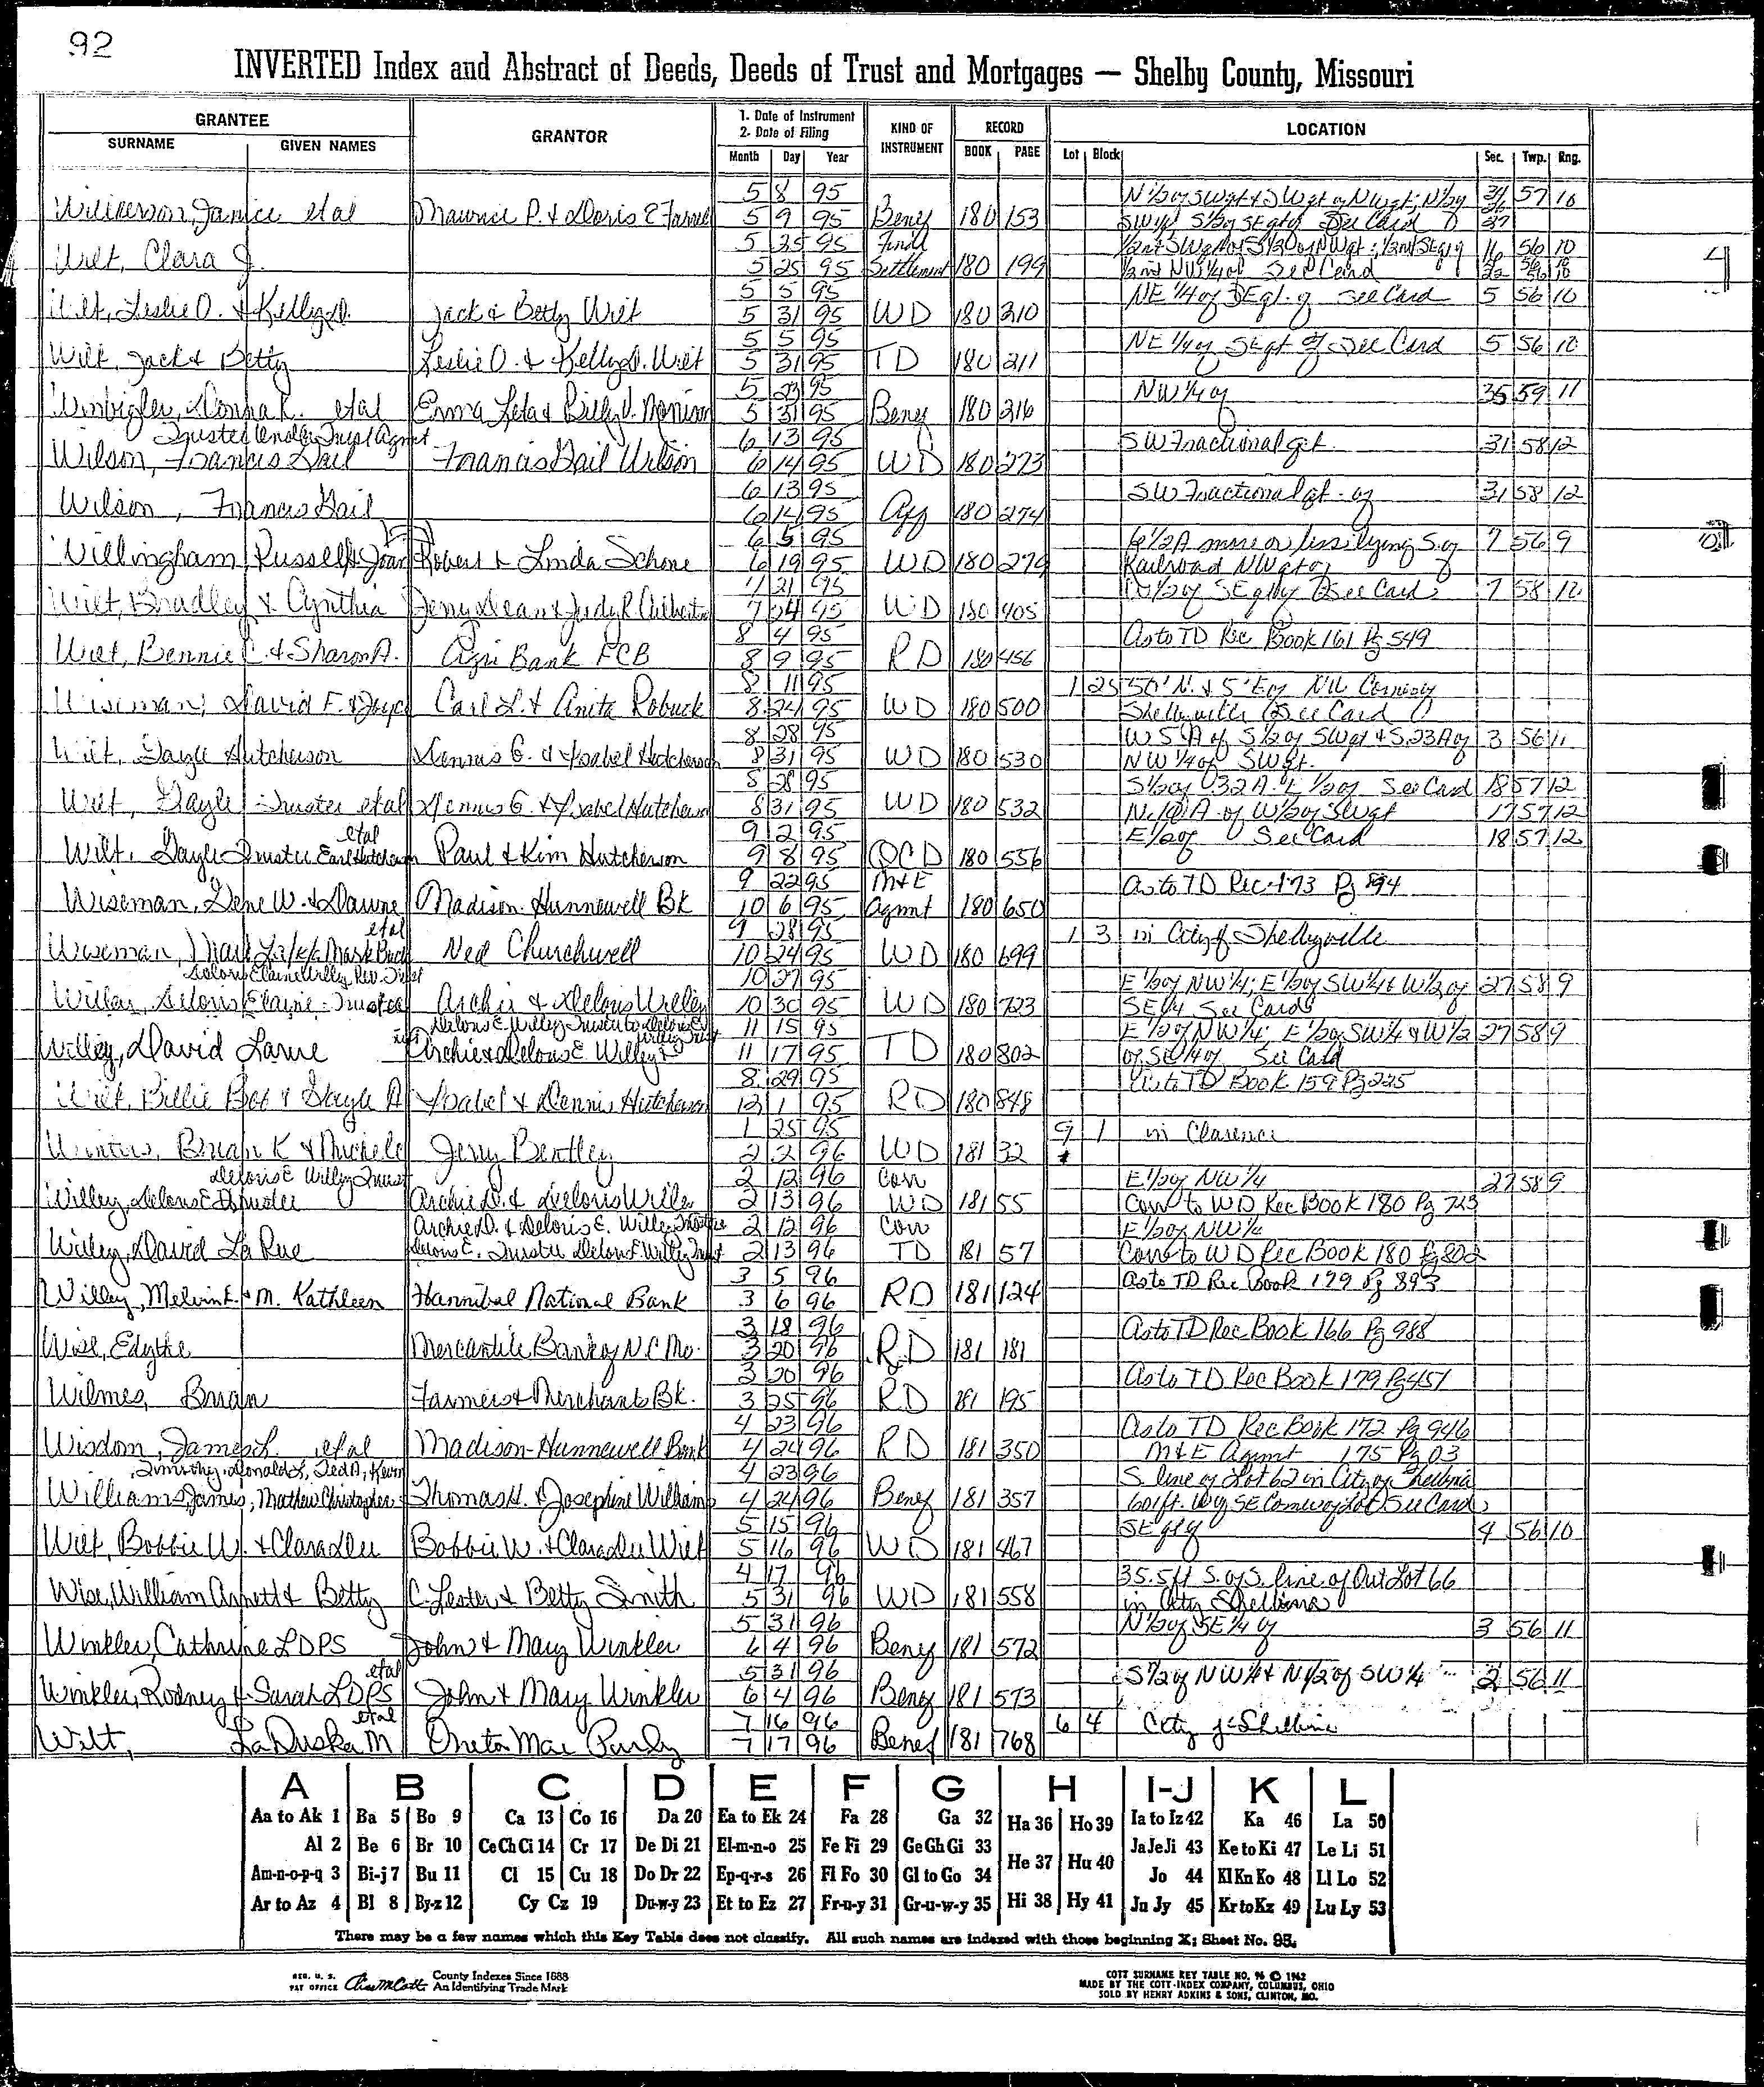 92
INVERTED Index and Abstract of Deeds, Deeds of Trust and Mortgages — Shelby County, Missouri
GRANTEE
SURNAME GIVEN NAMES
GRANTOR
1. Date of Instrument
2. Date of Filing
Month Day Year
KIND OF INSTRUMENT
RECORD
BOOK PAGE
LOCATION
Lot Block Sec. Twp. Rng.
5 8 95 57 10
Wilkerson, Janice etal Maurice P. & Doris E 5 9 95 Benef 180 153 See Card
5 25 95 Final 16 56 10
Wilt, Clara J. 5 25 95 Settlement 180 199 See Card
5 5 95 NE 1/4 of SE qt. of See Card 5 56 10
Wilt, Leslie O. & Kelly D. Jack & Betty Wilt 5 31 95 WD 180 210
5 5 95 NE 1/4 of SE qt of See Card 5 56 10
Wilt, Jack & Betty Leslie O. & Kelly D. Wilt 5 31 95 TD 180 211
5 23 95 NW 1/4 of 35 59 11
Winbigler, Donna L. etal Erma Leta & Billy 5 31 95 Benef 180 216
Trustee Under Trust Agmt 6 13 95 SW Fractional qt. 31 58 12
Wilson, Francis Gail Francis Gail Wilson 6 14 95 WD 180 273
6 13 95 SW Fractional qt. of 31 58 12
Wilson, Francis Gail 6 14 95 Aff 180 274
6 5 95 6 1/2 A more or less lying S. of 7 56 9
Willingham Russell & Joan Robert & Linda Schone 6 19 95 WD 180 279 Railroad NW qt of
7 21 95 See Card 7 58 12
Wilt, Bradley & Cynthia Jerry Dean & Judy R. 7 24 95 WD 180 405
8 4 95 As to TD Rec Book 161 Pg 549
Wilt, Bennie C. & Sharon A. Agri Bank FCB 8 9 95 RD 180 456
8 11 95 1 25 50' N. & 5' E of NW Corner of
Wiseman, David F. & Joyce Carl L. & Anita Robuck 8 24 95 WD 180 500 Shelbyville See Card
8 28 95 W 5 A of S 1/2 of SW qt & S. 23 A of 3 56 11
Wilt, Gayle Hutcherson Dennis G. & Ysabel Hutcherson 8 31 95 WD 180 530 NW 1/4 of SW qt.
8 28 95 See Card 18 57 12
Wilt, Gayle Trustee etal Dennis G. & Ysabel Hutcherson 8 31 95 WD 180 532 A of W 1/2 of SW qt 17 57 12
etal 9 2 95 E 1/2 of See Card 18 57 12
Wilt, Gayle Trustee Earl Hutcherson Paul & Kim Hutcherson 9 8 95 QCD 180 556
9 22 95 M&E As to TD Rec 173 Pg 894
Wiseman, Gene W. & Dawne Madison-Hunnewell Bk 10 6 95 Agmt 180 650
etal 9 28 95 1 3 in City of Shelbyville
Wiseman, Ned Churchwell 10 24 95 WD 180 699
Deloris Elaine Willey Rev. Trust 10 27 95 E 1/2 of NW 1/4; E 1/2 of SW 1/4 & W 1/2 of 27 58 9
Willey, Deloris Elaine - Trustee Archie & Deloris Willey 10 30 95 WD 180 723 SE 1/4 See Card
11 15 95 E 1/2 of NW 1/4; E 1/2 of SW 1/4 & W 1/2 27 58 9
Willey, David Larue Archie & Deloris E. Willey 11 17 95 TD 180 802 of SE 1/4 of See Card
8 29 95 As to TD Book 159 Pg 225
Wilt, Billie Bob & Gayle A Ysabel & Dennis Hutcherson 12 1 95 RD 180 848
1 25 95 9 1 in Clarence
Winters, Brian K & Michele Jerry Bentley 2 2 96 WD 181 32
Deloris E Willey Trust 2 12 96 Corr E 1/2 of NW 1/4 27 58 9
Willey, Deloris E Trustee Archie D. & Deloris Willey 2 13 96 WD 181 55 Corr to WD Rec Book 180 Pg 723
Archie D. & Deloris E. Willey Trustee 2 12 96 Corr E 1/2 of NW 1/4
Willey, David La Rue Deloris E. Trustee Deloris E Willey Trust 2 13 96 TD 181 57 Corr to WD Rec Book 180 Pg 802
3 5 96 As to TD Rec Book 179 Pg 893
Willey, Melvin E. & M. Kathleen Hannibal National Bank 3 6 96 RD 181 124
3 18 96 As to TD Rec Book 166 Pg 988
Wise, Edythe Mercantile Bank of N C Mo. 3 20 96 RD 181 181
3 20 96 As to TD Rec Book 179 Pg 451
Wilmes, Brian Farmers & Merchants Bk. 3 25 96 RD 181 195
4 23 96 As to TD Rec Book 172 Pg 946
Wisdom, James L. etal Madison-Hunnewell Bank 4 24 96 RD 181 350 M&E Agmt 175 Pg 03
Timothy, Donald L, Ted A, Kevin 4 23 96 S. line of Lot 62 in City of Shelbina
Williams, James, Mathew Christopher Thomas H. & Josephine Williams 4 24 96 Benef 181 357 601 ft. W of SE Corner of Lot See Card
5 15 96 SE qt of 4 56 10
Wilt, Bobbie W. & Clara Dee Bobbie W. & Clara Dee Wilt 5 16 96 WD 181 467
4 17 96 35.5 ft S. of S. line of Out Lot 66
Wise, William Arnett & Betty C. Lester & Betty Smith 5 31 96 WD 181 558 in City Shelbina
5 31 96 N 1/2 of SE 1/4 of 3 56 11
Winkler, Cathrine LDPS John & Mary Winkler 6 4 96 Benef 181 572
etal 5 31 96 S 1/2 of NW 1/4 & N 1/2 of SW 1/4 2 56 11
Winkler, Rodney & Sarah LDPS John & Mary Winkler 6 4 96 Benef 181 573
etal 7 16 96 6 4 City of Shelbina
Wilt, LaDuska M Oneta Mae 7 17 96 Benef 181 768
A B C D E F G H I-J K L
Aa to Ak 1 Ba 5 Bo 9 Ca 13 Co 16 Da 20 Ea to Ek 24 Fa 28 Ga 32 Ha 36 Ho 39 Ia to Iz 42 Ka 46 La 50
Al 2 Be 6 Br 10 Ce Ch Ci 14 Cr 17 De Di 21 El-m-n-o 25 Fe Fi 29 Ge Gh Gi 33 He 37 Hu 40 Ja Je Ji 43 Ke to Ki 47 Le Li 51
Am-n-o-p-q 3 Bi-j 7 Bu 11 Cl 15 Cu 18 Do Dr 22 Ep-q-r-s 26 Fl Fo 30 Gl to Go 34 Jo 44 Kl Kn Ko 48 Ll Lo 52
Ar to Az 4 Bl 8 By-z 12 Cy Cz 19 Du-w-y 23 Et to Ez 27 Fr-u-y 31 Gr-u-w-y 35 Hi 38 Hy 41 Ju Jy 45 Kr to Kz 49 Lu Ly 53
There may be a few names which this Key Table does not classify. All such names are indexed with those beginning X; Sheet No. 95.
REG. U. S. PAT OFFICE
County Indexes Since 1888
An Identifying Trade Mark
COTT SURNAME KEY TABLE NO. 96 © 1962
MADE BY THE COTT INDEX COMPANY, COLUMBUS, OHIO
SOLD BY HENRY ADKINS & SONS, CLINTON, MO.